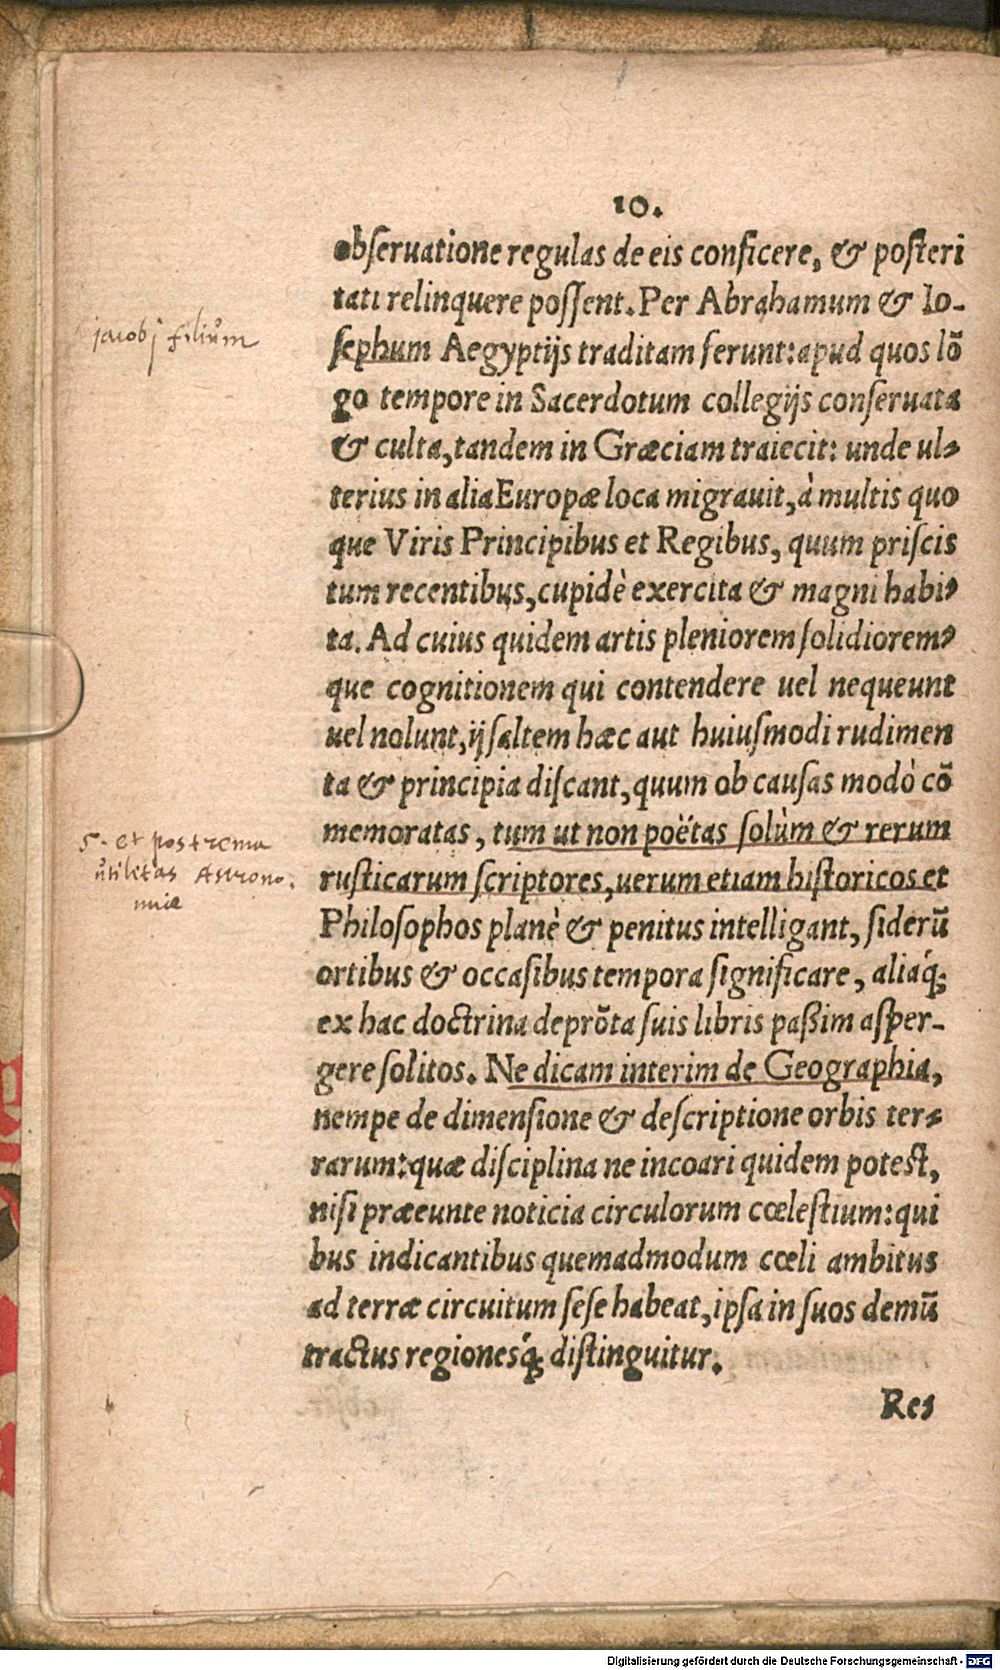 10.
obſeruatione regulas de eis conficere, & poſteri
tati relinquere poſſent. Per Abrahamum & Io-
ſephum Aegyptijs traditam ferunt: apud quos lō
go tempore in Sacerdotum collegijs conſeruata
& culta, tandem in Græciam traiecit: unde ul-
terius in alia Europæ loca migrauit, à multis quo
que Viris Principibus et Regibus, quum priſcis
tum recentibus, cupidè exercita & magni habi-
ta. Ad cuius quidem artis pleniorem ſolidiorem-
que cognitionem qui contendere uel nequeunt
uel nolunt, ij ſaltem hæc aut huiuſmodi rudimen
ta & principia diſcant, quum ob cauſas modò cō
memoratas, tum ut non poëtas ſolùm & rerum
ruſticarum ſcriptores, uerum etiam hiſtoricos et
Philoſophos planè & penitus intelligant, ſiderū
ortibus & occaſibus tempora ſignificare, aliaq́;
ex hac doctrina deprōta ſuis libris paßim aſper-
gere ſolitos. Ne dicam interim de Geographia,
nempe de dimenſione & deſcriptione orbis ter-
rarum: quæ diſciplina ne incoari quidem poteſt,
niſi præeunte noticia circulorum cœleſtium: qui
bus indicantibus quemadmodum cœli ambitus
ad terræ circuitum ſeſe habeat, ipſa in ſuos demū
tractus regionesq́; diſtinguitur.
Res
jacobj filium
5. et postrema
utilitas Astrono.
miæ
Digitalisierung gefördert durch die Deutsche Forschungsgemeinschaft - DFG